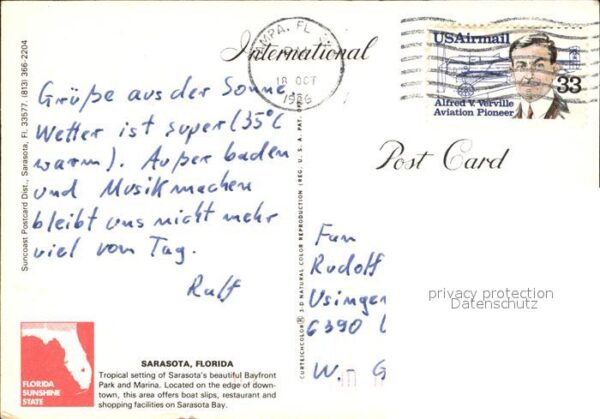 International
TAMPA, FL
PM
18 OCT
1986
USAirmail
33
Alfred V. Verville
Aviation Pioneer
Post Card
Grüße aus der Sonne,
Wetter ist super (35°C
warm). Außer baden
und Musikmachen
bleibt uns nicht mehr
viel vom Tag.
Ralf
Fam
Rudolf
Usinger
6390
W. G
privacy protection
Datenschutz
Suncoast Postcard Dist., Sarasota, Fl. 33577. (813) 366-2204
CURTEICHCOLOR® 3-D NATURAL COLOR REPRODUCTION (REG. U.S.A. PAT. OFF.
FLORIDA
SUNSHINE
STATE
SARASOTA, FLORIDA
Tropical setting of Sarasota's beautiful Bayfront
Park and Marina. Located on the edge of down-
town, this area offers boat slips, restaurant and
shopping facilities on Sarasota Bay.